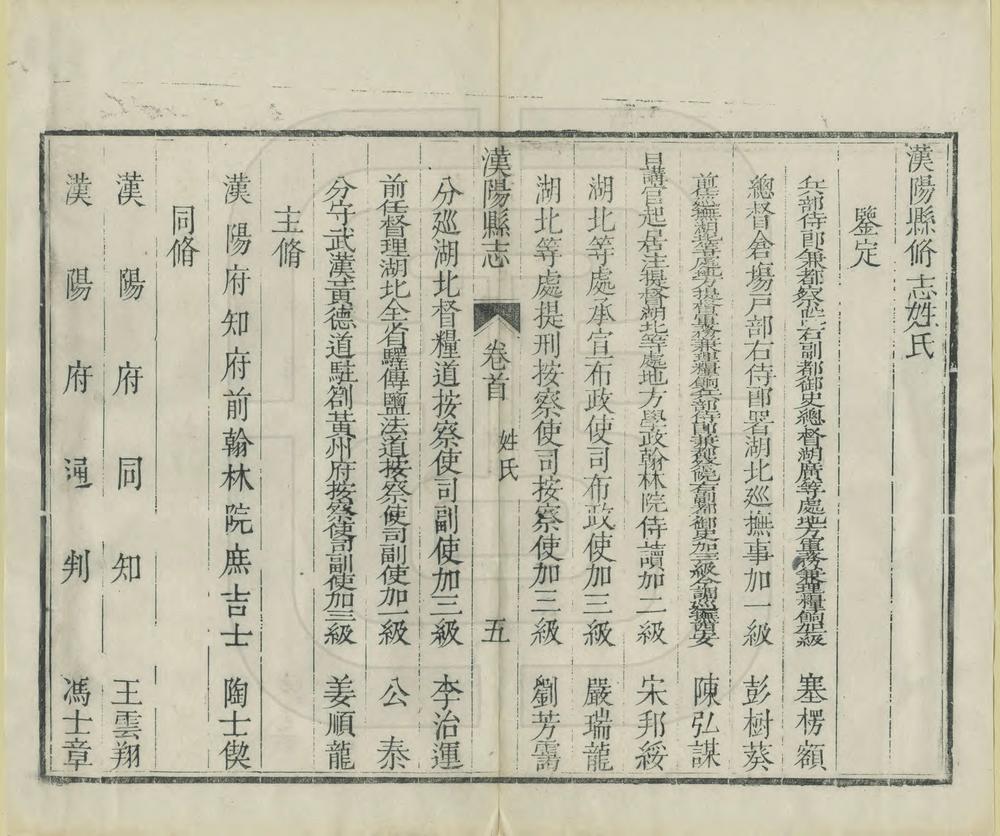 漢陽縣脩志姓氏
鑒定
兵部侍郎兼都察院右副都御史總督湖廣等處地方軍務兼理糧餉加三級 塞楞額
總督倉場戶部右侍郎署湖北廵撫事加一級 彭樹葵
前任廵撫湖北等處地方提督軍務兼理糧餉兵部侍郎兼都察院右副都御史加三級今調廵撫西安 陳弘謀
日講官起居注提督湖北等處地方學政翰林院侍讀加二級 宋邦綏
湖北等處承宣布政使司布政使加三級 嚴瑞龍
湖北等處提刑按察使司按察使加三級 劉芳靄
漢陽縣志 卷首 姓氏 五
分廵湖北督糧道按察使司副使加三級 李治運
前任督理湖北全省驛傳鹽法道按察使司副使加一級 公泰
分守武漢黃德道駐劄黃州府按察使司副使加三級 姜順龍
主脩
漢陽府知府前翰林院庶吉士 陶士偰
同脩
漢陽府同知 王雲翔
漢陽府通判 馮士章